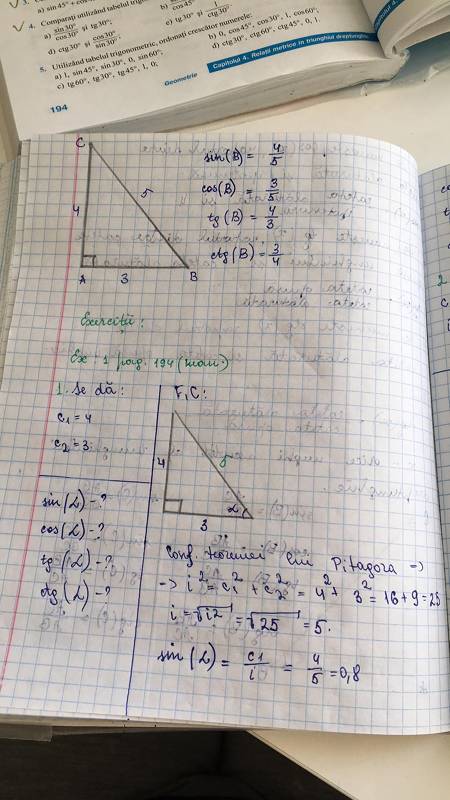 a) sin45° + cos
4. Comparaţi utilizând tabelul trigonome
a) sin30°/cos30° şi tg30°;
c) tg30° şi 1/ctg30°
d) ctg30° şi cos30°/sin30°;
5. Utilizând tabelul trigonometric, ordonaţi crescător numerele:
a) 1, sin45°, sin30°, 0, sin60°;
b) 0, cos45°, cos30°, 1, cos60°;
c) tg60°, tg30°, tg45°, 1, 0;
d) ctg30°, ctg60°, ctg45°, 0, 1.
194
Geometrie
Capitolul 4. Relaţii metrice în triunghiul dreptunghic
C
4
5
A
3
B
sin(B) = 4/5
cos(B) = 3/5
tg(B) = 4/3
ctg(B) = 3/4
Exerciţii:
Ex 1 pag. 194 (man.)
1. Se dă:
c1 = 4
c2 = 3
sin(L) - ?
cos(L) - ?
tg(L) - ?
ctg(L) - ?
F, C:
4
5
L
3
Conf. teoremei lui Pitagora →
→ i² = c1² + c2² = 4² + 3² = 16 + 9 = 25
i = √i2 = √25 = 5.
sin(L) = c1/i = 4/5 = 0,8